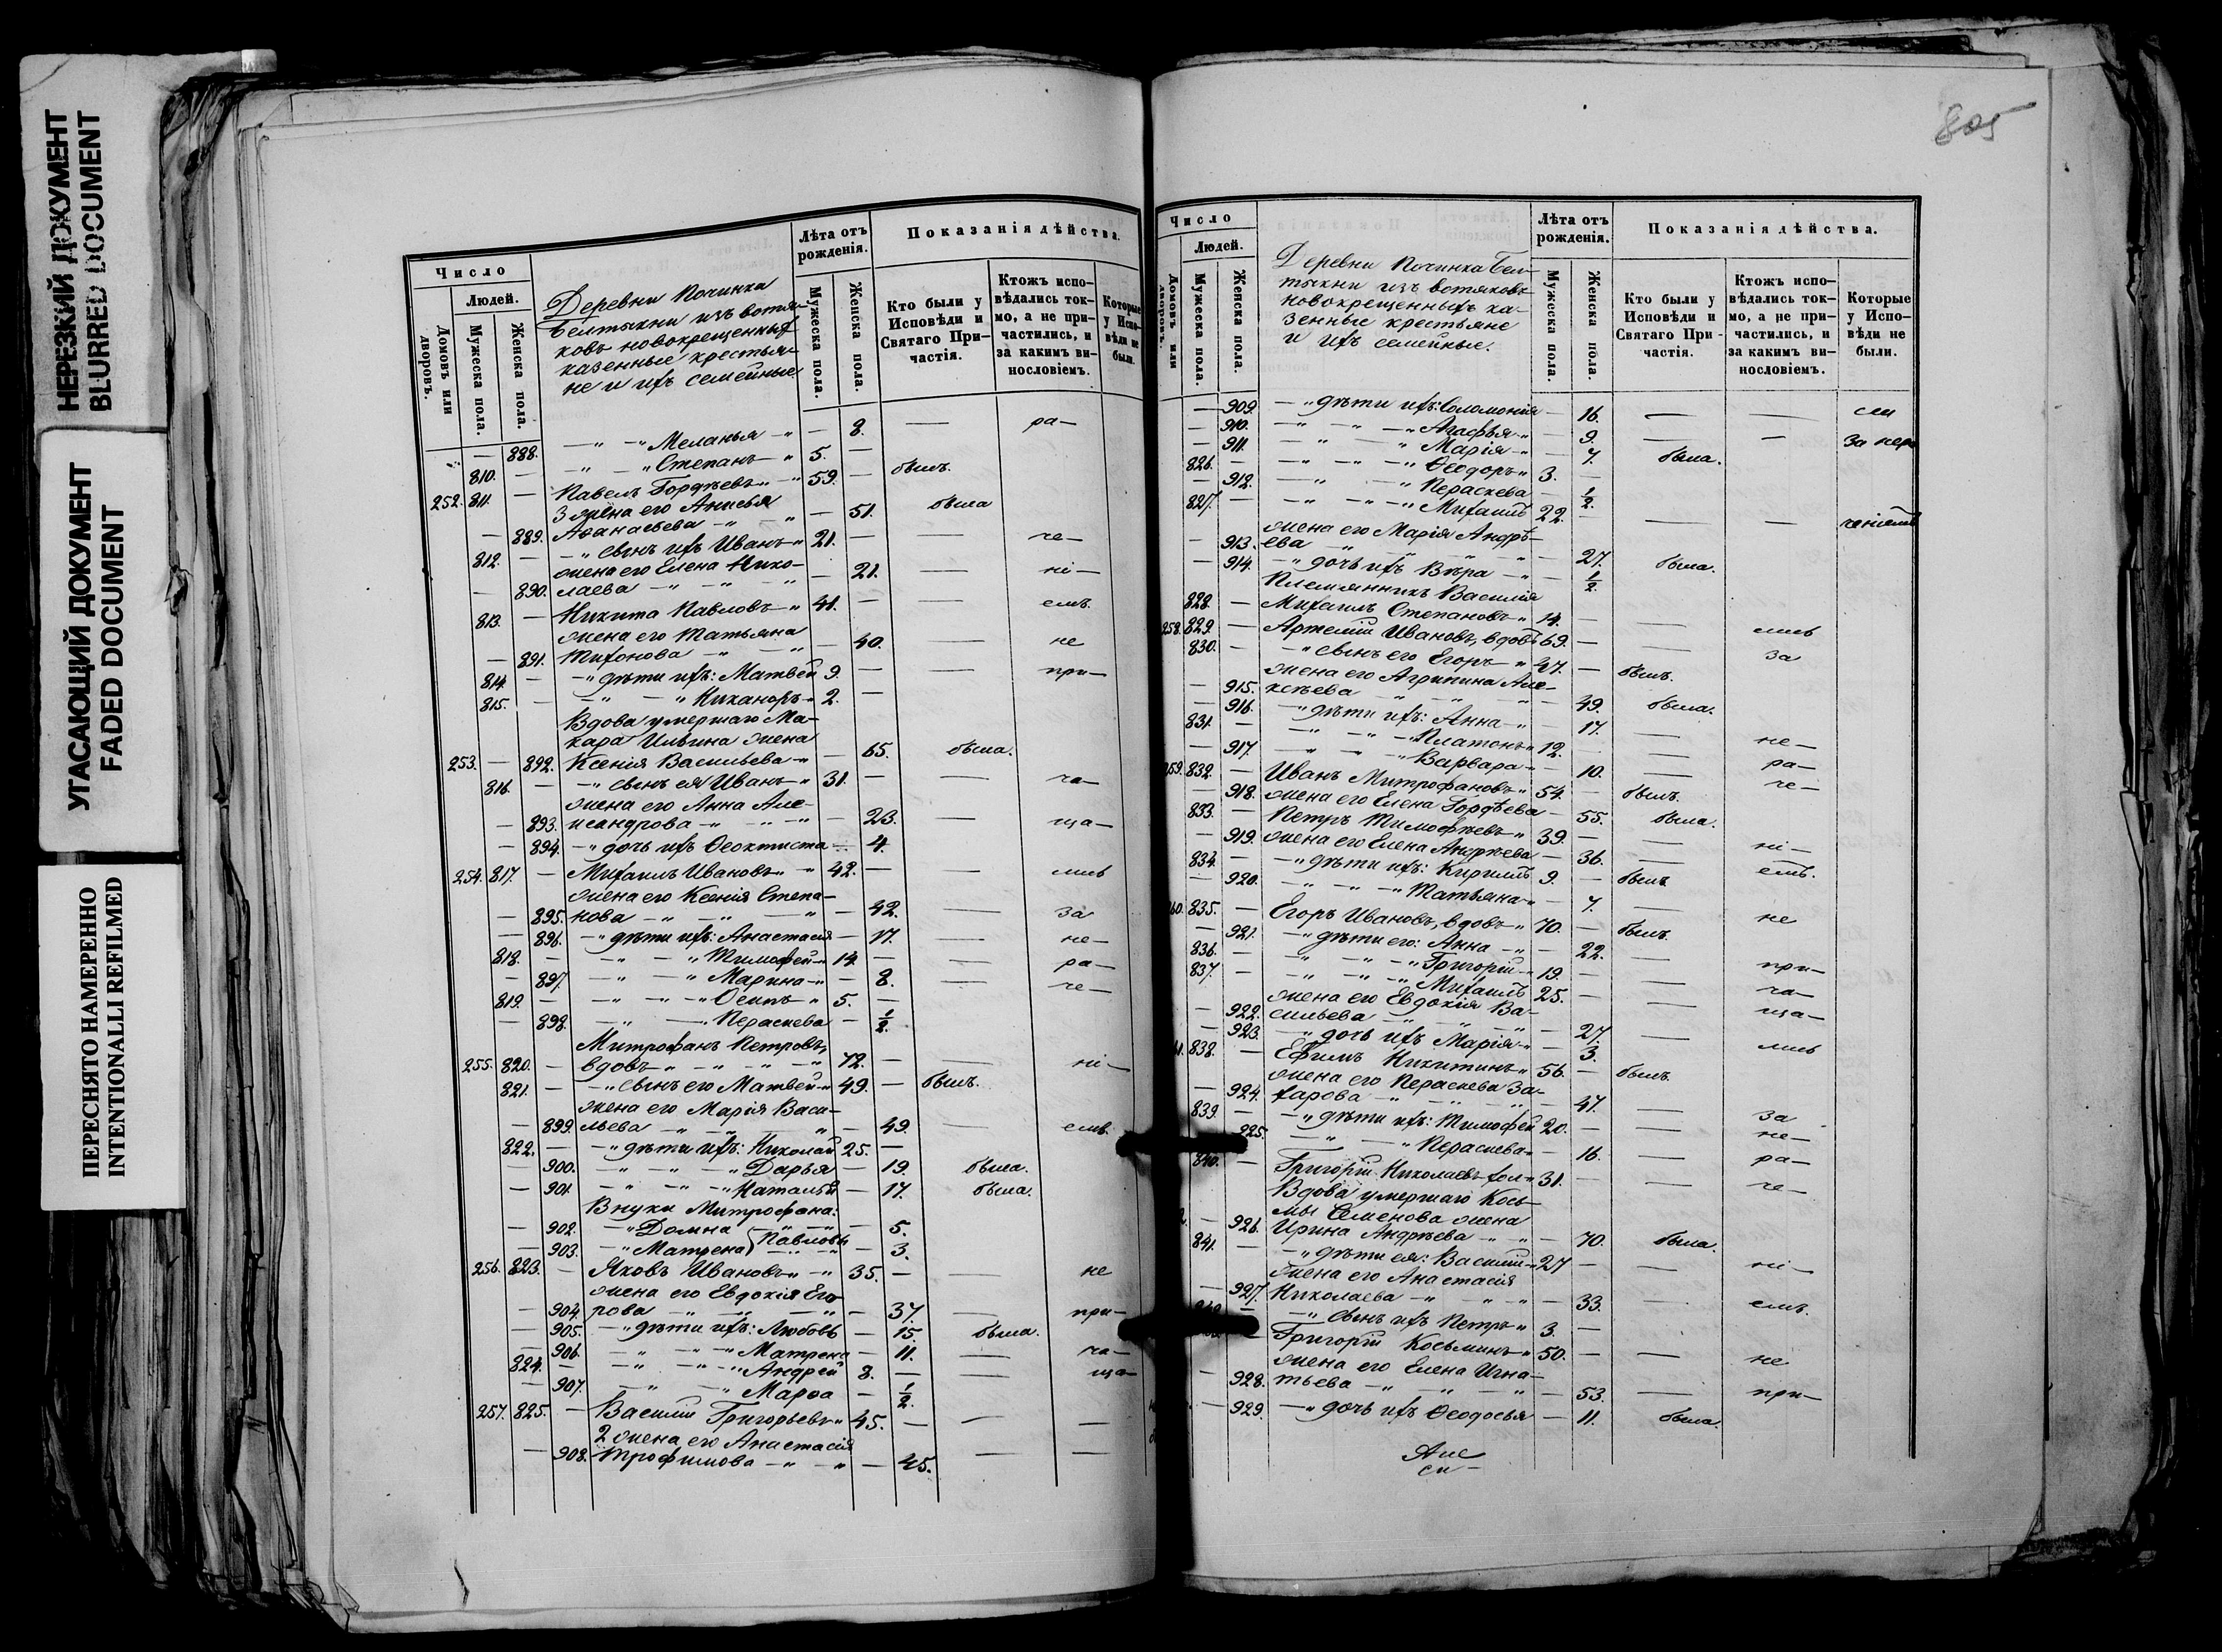 НЕРЕЗКИЙ ДОКУМЕНТ
BLURRED DOCUMENT
УГАСАЮЩИЙ ДОКУМЕНТ
FADED DOCUMENT
ПЕРЕСНЯТО НАМЕРЕННО
INTENTIONALLI REFILMED
Число
Людей.
Домовъ или дворовъ.
Мужеска пола.
Женска пола.
Деревни Починка
Белтыкни изъ вотя-
ковъ новокрещенныхъ
казенные крестья-
не и ихъ семейные
Лѣта отъ рожденія.
Мужеска пола.
Женска пола.
Показанія дѣйства.
Кто были у Исповѣди и Святаго При-частія.
Ктожъ испо-вѣдались ток-мо, а не при-частились, и за какимъ ви-нословіемъ.
Которые у Испо-вѣди не были.
— 888. —„ —„ Меланья —„ — 8. — ра—
810. — —„ —„ Степанъ —„ 5. —
252. 811. — Павелъ Гордѣевъ —„ 59. — былъ.
3 жена его Анисья
— 889. Аѳанасьева —„ —„ — 51. была
812. — —„ сынъ ихъ Иванъ —„ 21. — — че—
жена его Елена Нико-
— 890. лаева —„ —„ —„ — 21. — ні—
813. — Никита Павловъ —„ 41. — — емъ.
жена его Татьяна
— 891. Тихонова —„ —„ — 40. — не
814. — —„ дѣти ихъ: Матвей 9. — — при—
815. — —„ —„ Никаноръ —„ 2. —
Вдова умершаго Ма-
кара Ильина жена
253. — 892. Ксенія Васильева —„ — 65. была.
816. — —„ сынъ ея Иванъ —„ 31. — — ча—
жена его Анна Але-
— 893. ксандрова —„ —„ —„ — 23. — ща—
— 894. —„ дочь ихъ Ѳеоктиста — 4.
254. 817. — Михаилъ Ивановъ —„ —„ 42. — — лись
жена его Ксенія Степа-
— 895. нова —„ —„ —„ — 42. — за
— 896. —„ дѣти ихъ: Анастасія — 17. — не—
818. — —„ —„ Тимофей —„ 14. — — ра—
— 897. —„ —„ Марина —„ — 8. — че—
819. — —„ —„ —„ Осипъ —„ 5. —
— 898. —„ —„ Пераскева — ½.
Митрофанъ Петровъ,
255. 820. — вдовъ —„ —„ —„ —„ 72. — — ні—
821. — —„ сынъ его Матвей —„ 49. — былъ.
жена его Марія Васи-
— 899. льева —„ —„ —„ — 49. — емъ.
822. — —„ дѣти ихъ: Николай 25. —
— 900. —„ —„ —„ Дарья — 19. была.
— 901. —„ —„ —„ Наталья — 17. была.
Внуки Митрофана:
— 902. —„ Домна —„ —„ — 5.
Павловы
— 903. —„ Матрена —„ —„ — 3.
256. 823. — Яковъ Ивановъ —„ —„ 35. — — не
жена его Евдокія Его-
— 904. рова —„ —„ —„ — 37. — при—
— 905. —„ дѣти ихъ: Любовь — 15. была.
— 906. —„ —„ —„ Матрена — 11. — ча—
824. — —„ —„ —„ Андрей 8. — — ща—
— 907. —„ —„ Марѳа — ½.
257. 825. — Василій Григорьевъ —„ 45. — — —
2 жена его Анастасія
— 908. Трофимова —„ —„ — 45. — —
805
Число
Людей.
Домовъ или дворовъ.
Мужеска пола.
Женска пола.
Деревни Починка Бел-
тыкни изъ вотяковъ
новокрещенныхъ ка-
зенные крестьяне
и ихъ семейные.
Лѣта отъ рожденія.
Мужеска пола.
Женска пола.
Показанія дѣйства.
Кто были у Исповѣди и Святаго При-частія.
Ктожъ испо-вѣдались ток-мо, а не при-частились, и за какимъ ви-нословіемъ.
Которые у Испо-вѣди не были.
— 909. —„ дѣти ихъ: Соломонія — 16. — —
— 910. —„ —„ —„ Агафья —„ — 9. — — за нера
— 911. —„ —„ —„ Марія —„ — 7. была.
826. — —„ —„ —„ Ѳеодоръ —„ 3. —
— 912. —„ —„ Пераскева — ½.
827. — —„ —„ —„ Михаилъ 22. — — — ченіемъ
жена его Марія Андрѣ-
— 913. ева —„ —„ —„ —„ — 27. была.
— 914. —„ дочь ихъ Вѣра —„ — ½.
Племянникъ Василія
828. — Михаилъ Степановъ —„ 14. — — лись
258. 829. — Артемій Ивановъ, вдовъ 69. — — за
830. — —„ сынъ его Егоръ —„ 47. — былъ.
жена его Агрипина Але-
— 915. ксѣева —„ —„ —„ — 49. была.
— 916. —„ дѣти ихъ: Анна —„ — 17. — не—
831. — —„ —„ —„ Платонъ —„ 12. — — ра—
— 917. —„ —„ —„ Варвара —„ — 10. — че—
259. 832. — Иванъ Митрофановъ —„ 54. — былъ.
— 918. жена его Елена Гордѣева — 55. была.
833. — Петръ Тимофѣевъ —„ 39. — — ні—
— 919. жена его Елена Андрѣева — 36. — емъ.
834. — —„ дѣти ихъ: Кирилъ 9. — былъ
— 920. —„ —„ —„ Татьяна —„ — 7. — не
260. 835. — Егоръ Ивановъ, вдовъ —„ 70. — былъ.
— 921. —„ дѣти его: Анна —„ — 22. — при—
836. — —„ —„ —„ Григорій —„ 19. — — ча—
837. — —„ —„ —„ Михаилъ 25. — — ща—
жена его Евдокія Ва-
— 922. сильева —„ —„ —„ — 27. — лись
— 923. —„ дочь ихъ Марія —„ — 3.
838. — Ефимъ Никитинъ —„ 56. — былъ.
жена его Пераскева За-
— 924. харова —„ —„ —„ — 47. — за
839. — —„ дѣти ихъ: Тимофей 20. — — не—
925. —„ —„ Пераскева —„ — 16. — ра—
840. — Григорій Николаевъ хол —„ 31. — — че—
Вдова умершаго Кось-
мы Семенова жена
— 926. Ирина Андрѣева —„ —„ — 70. была.
841. — —„ дѣти ея: Василій —„ 27 — — ні—
жена его Анастасія
— 927. Николаева —„ —„ —„ — 33. — емъ.
— —„ сынъ ихъ Петръ —„ 3. —
— Григорій Косьминъ —„ 50. — — не
жена его Елена Игна-
— 928. тьева —„ —„ —„ — 53. — при—
— 929. —„ дочь ихъ Ѳеодосья — 11. была.